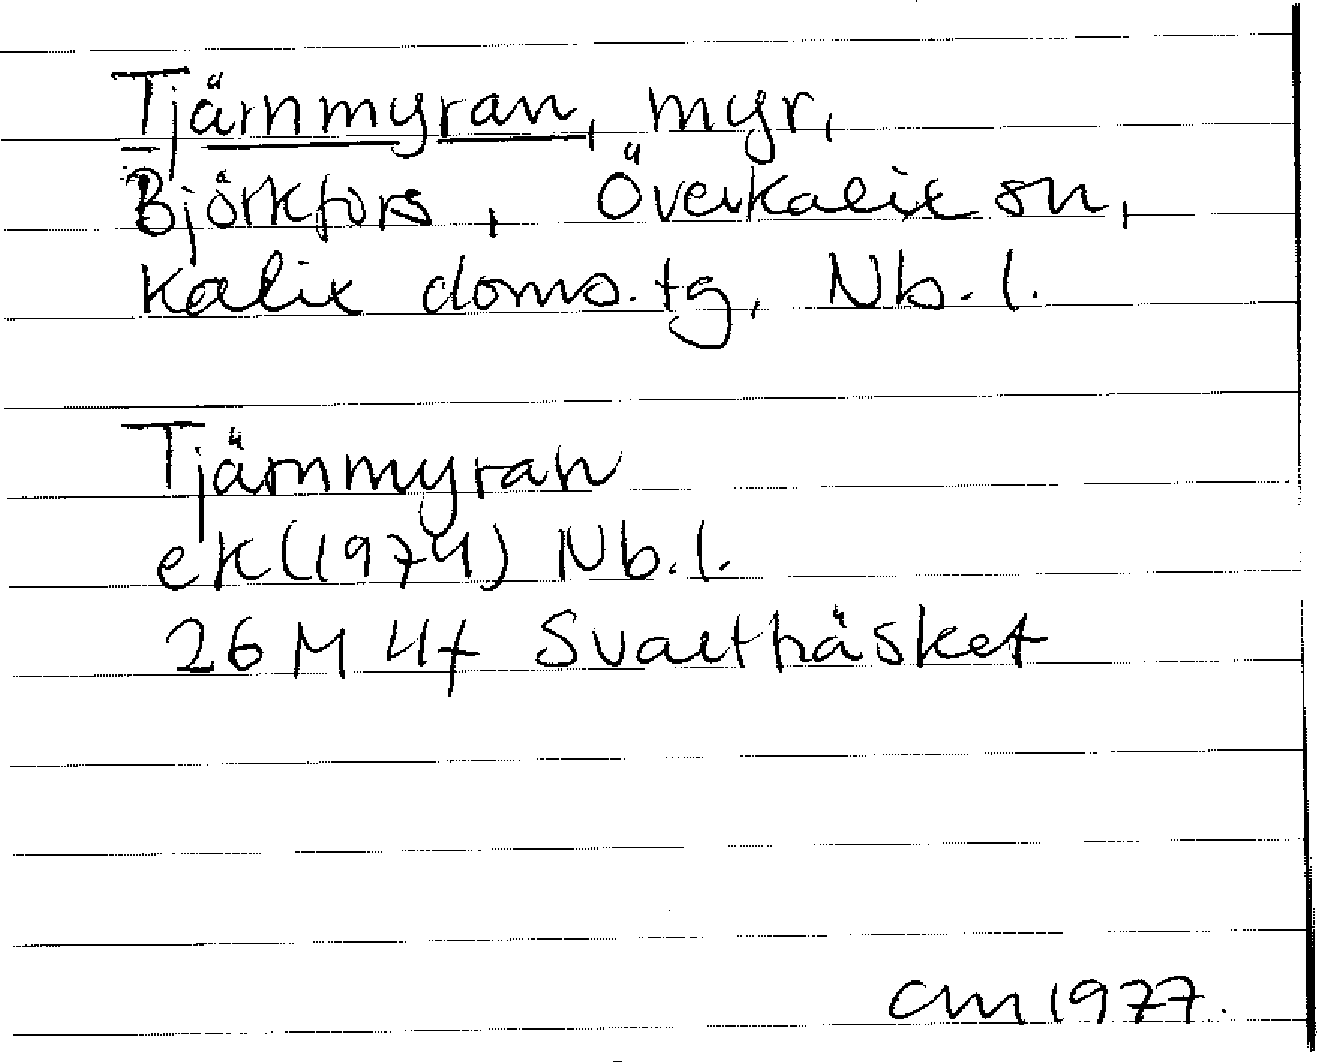 Tjärnmyran, myr,
Björkfors, Överkalix sn,
Kalix doms.tg, Nb. l.
Tjärnmyran
ek (1974) Nb. l.
26 M 4f Svartträsket
CM 1977.